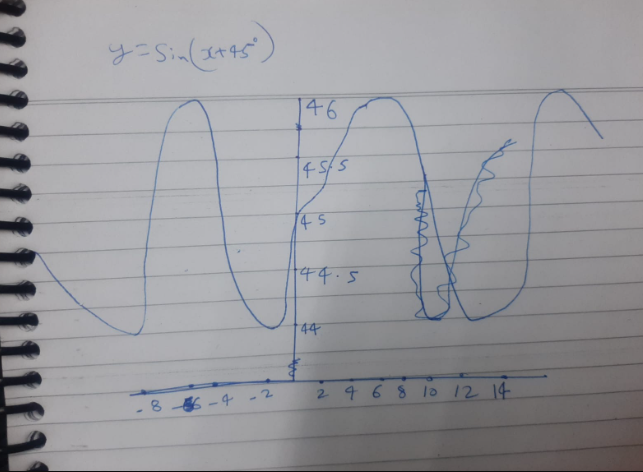 y=Sin(x+45°)
46
45.5
45
44.5
44
-8 -6 -4 -2 2 4 6 8 10 12 14